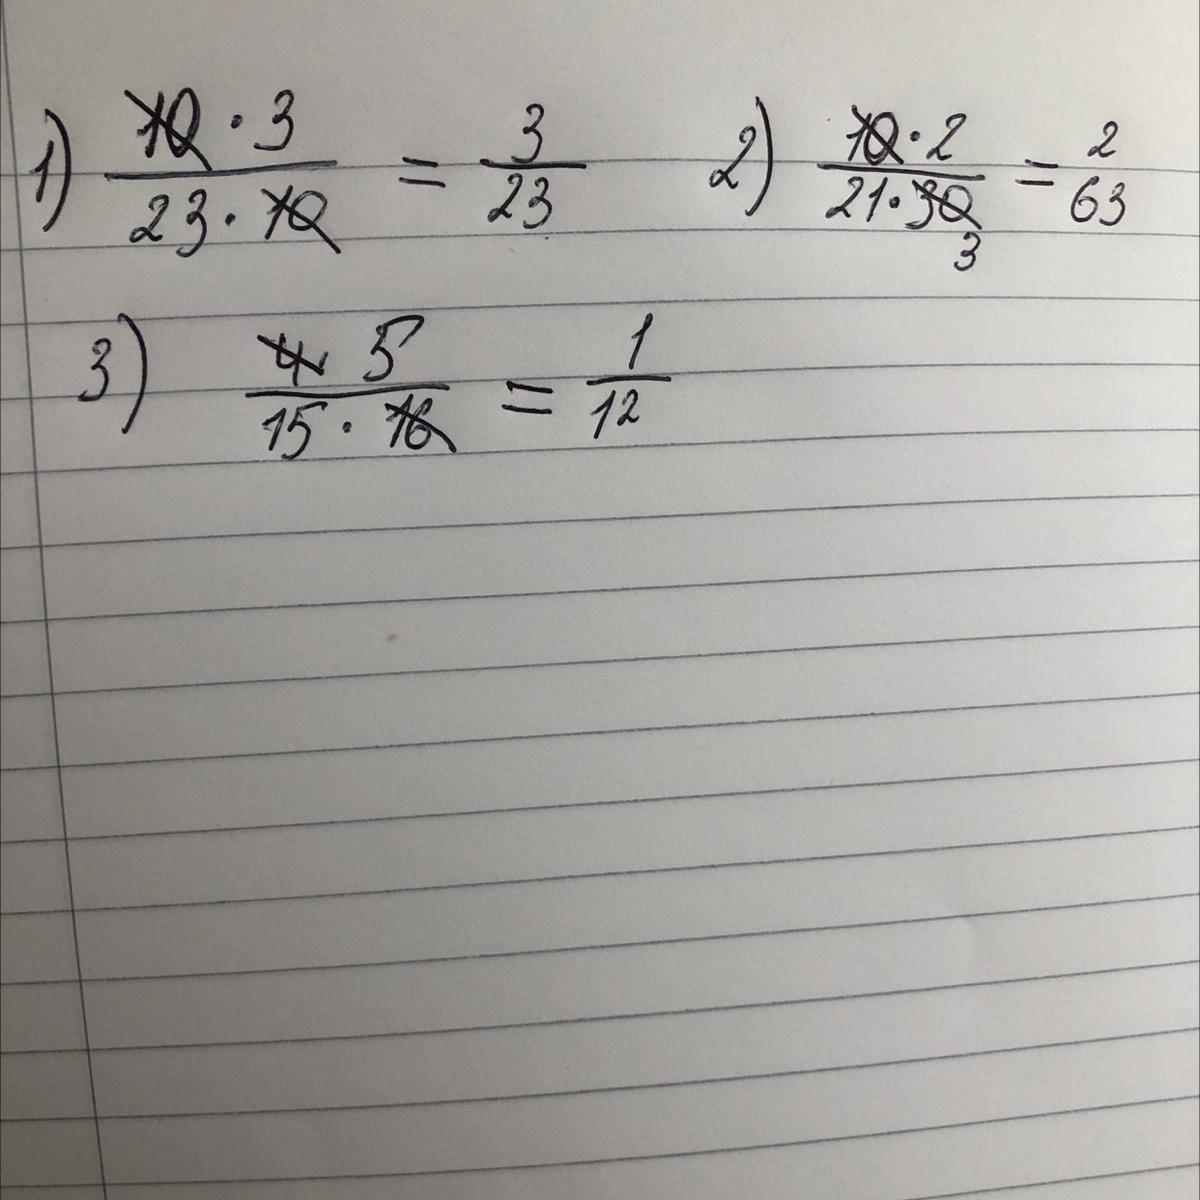 1) 10 · 3 / 23 · 10 = 3 / 23
2) 10 · 2 / 21 · 30 3 = 2 / 63
3) 4 5 / 15 · 16 = 1 / 12